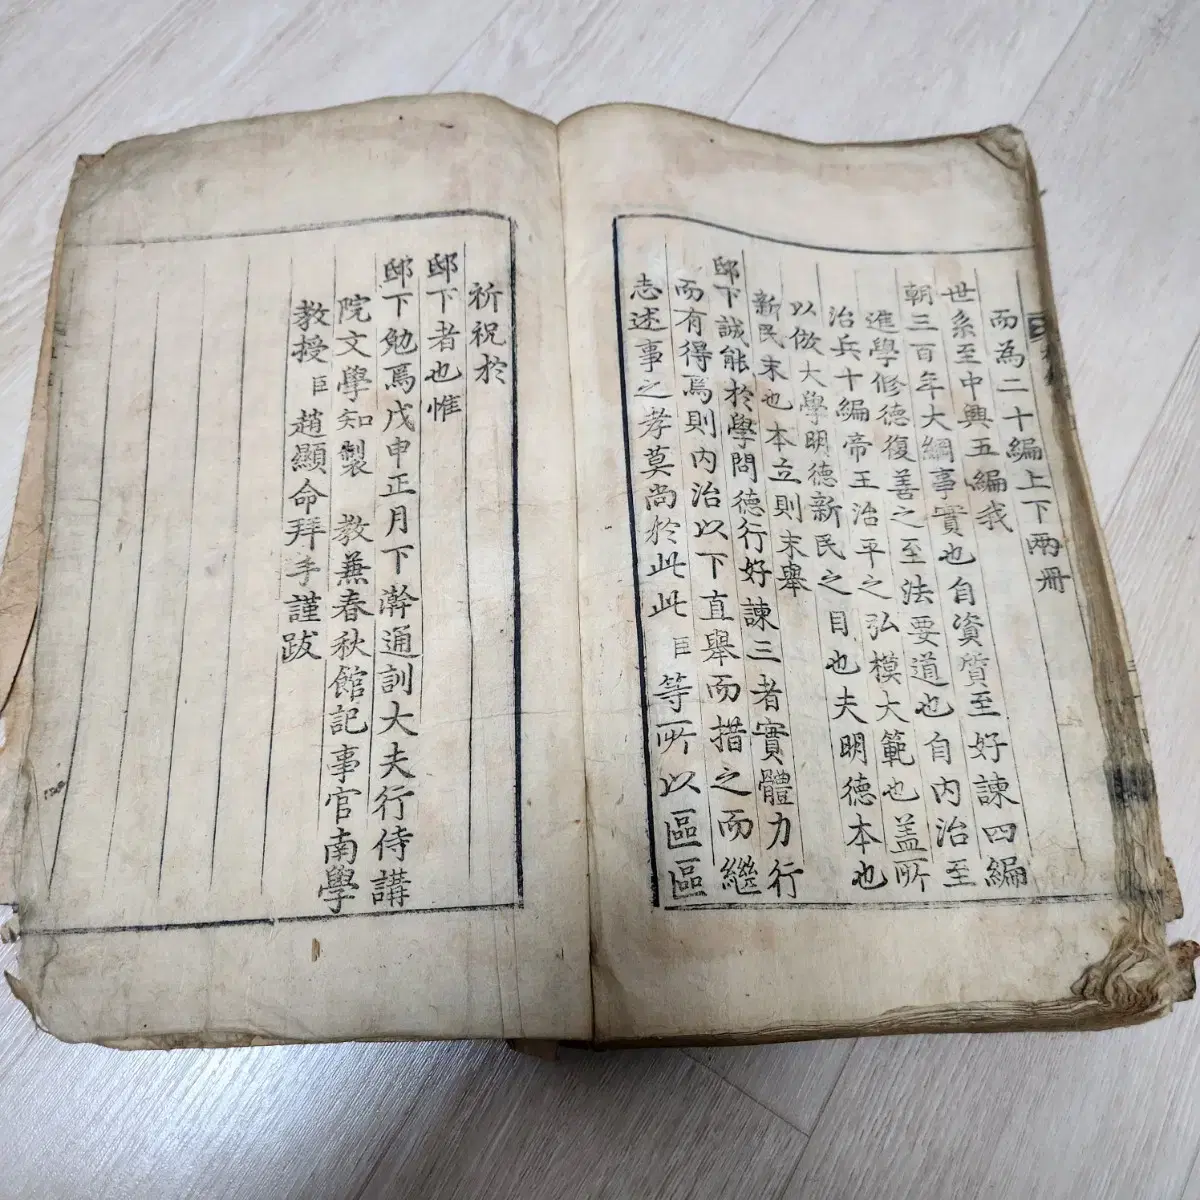 而為二十編上下兩冊
世系至中興五編我
朝三百年大綱事實也自資質至好諫四編
進學修德復善之至法要道也自內治至
治兵十編帝王治平之弘模大範也盖所
以倣大學明德新民之目也夫明德本也
新民末也本立則末舉
邸下誠能於學問德行好諫三者實體力行
而有得焉則內治以下直舉而措之而繼
志述事之孝莫尚於此此臣等所以區區
祈祝於
邸下者也惟
邸下勉焉戊申正月下澣通訓大夫行侍講
院文學知製 教兼春秋館記事官南學
教授臣趙顯命拜手謹跋